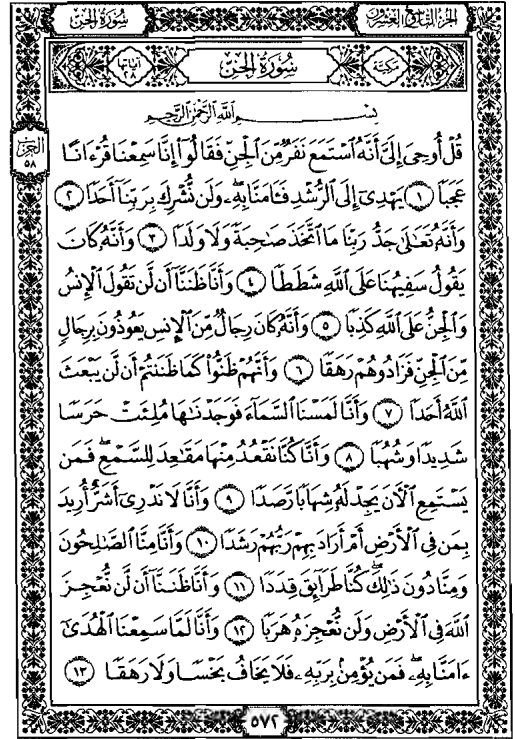 الجزء التاسع والعشرون
سُورَةُ الجِنِّ
مكيّة
سُورَةُ الجِنِّ
آياتها ٢٨
بِسْمِ اللَّهِ الرَّحْمَٰنِ الرَّحِيمِ
الحزب ٥٨
قُلْ أُوحِىَ إِلَىَّ أَنَّهُ ٱسْتَمَعَ نَفَرٌ مِّنَ ٱلْجِنِّ فَقَالُوٓا۟ إِنَّا سَمِعْنَا قُرْءَانًا
عَجَبًا ١ يَهْدِىٓ إِلَى ٱلرُّشْدِ فَـَٔامَنَّا بِهِۦ ۖ وَلَن نُّشْرِكَ بِرَبِّنَآ أَحَدًا ٢
وَأَنَّهُۥ تَعَٰلَىٰ جَدُّ رَبِّنَا مَا ٱتَّخَذَ صَٰحِبَةً وَلَا وَلَدًا ٣ وَأَنَّهُۥ كَانَ
يَقُولُ سَفِيهُنَا عَلَى ٱللَّهِ شَطَطًا ٤ وَأَنَّا ظَنَنَّآ أَن لَّن تَقُولَ ٱلْإِنسُ
وَٱلْجِنُّ عَلَى ٱللَّهِ كَذِبًا ٥ وَأَنَّهُۥ كَانَ رِجَالٌ مِّنَ ٱلْإِنسِ يَعُوذُونَ بِرِجَالٍ
مِّنَ ٱلْجِنِّ فَزَادُوهُمْ رَهَقًا ٦ وَأَنَّهُمْ ظَنُّوا۟ كَمَا ظَنَنتُمْ أَن لَّن يَبْعَثَ
ٱللَّهُ أَحَدًا ٧ وَأَنَّا لَمَسْنَا ٱلسَّمَآءَ فَوَجَدْنَٰهَا مُلِئَتْ حَرَسًا
شَدِيدًا وَشُهُبًا ٨ وَأَنَّا كُنَّا نَقْعُدُ مِنْهَا مَقَٰعِدَ لِلسَّمْعِ ۖ فَمَن
يَسْتَمِعِ ٱلْـَٔانَ يَجِدْ لَهُۥ شِهَابًا رَّصَدًا ٩ وَأَنَّا لَا نَدْرِىٓ أَشَرٌّ أُرِيدَ
بِمَن فِى ٱلْأَرْضِ أَمْ أَرَادَ بِهِمْ رَبُّهُمْ رَشَدًا ١٠ وَأَنَّا مِنَّا ٱلصَّٰلِحُونَ
وَمِنَّا دُونَ ذَٰلِكَ ۖ كُنَّا طَرَآئِقَ قِدَدًا ١١ وَأَنَّا ظَنَنَّآ أَن لَّن نُّعْجِزَ
ٱللَّهَ فِى ٱلْأَرْضِ وَلَن نُّعْجِزَهُۥ هَرَبًا ١٢ وَأَنَّا لَمَّا سَمِعْنَا ٱلْهُدَىٰٓ
ءَامَنَّا بِهِۦ ۖ فَمَن يُؤْمِنۢ بِرَبِّهِۦ فَلَا يَخَافُ بَخْسًا وَلَا رَهَقًا ١٣
٥٧٢